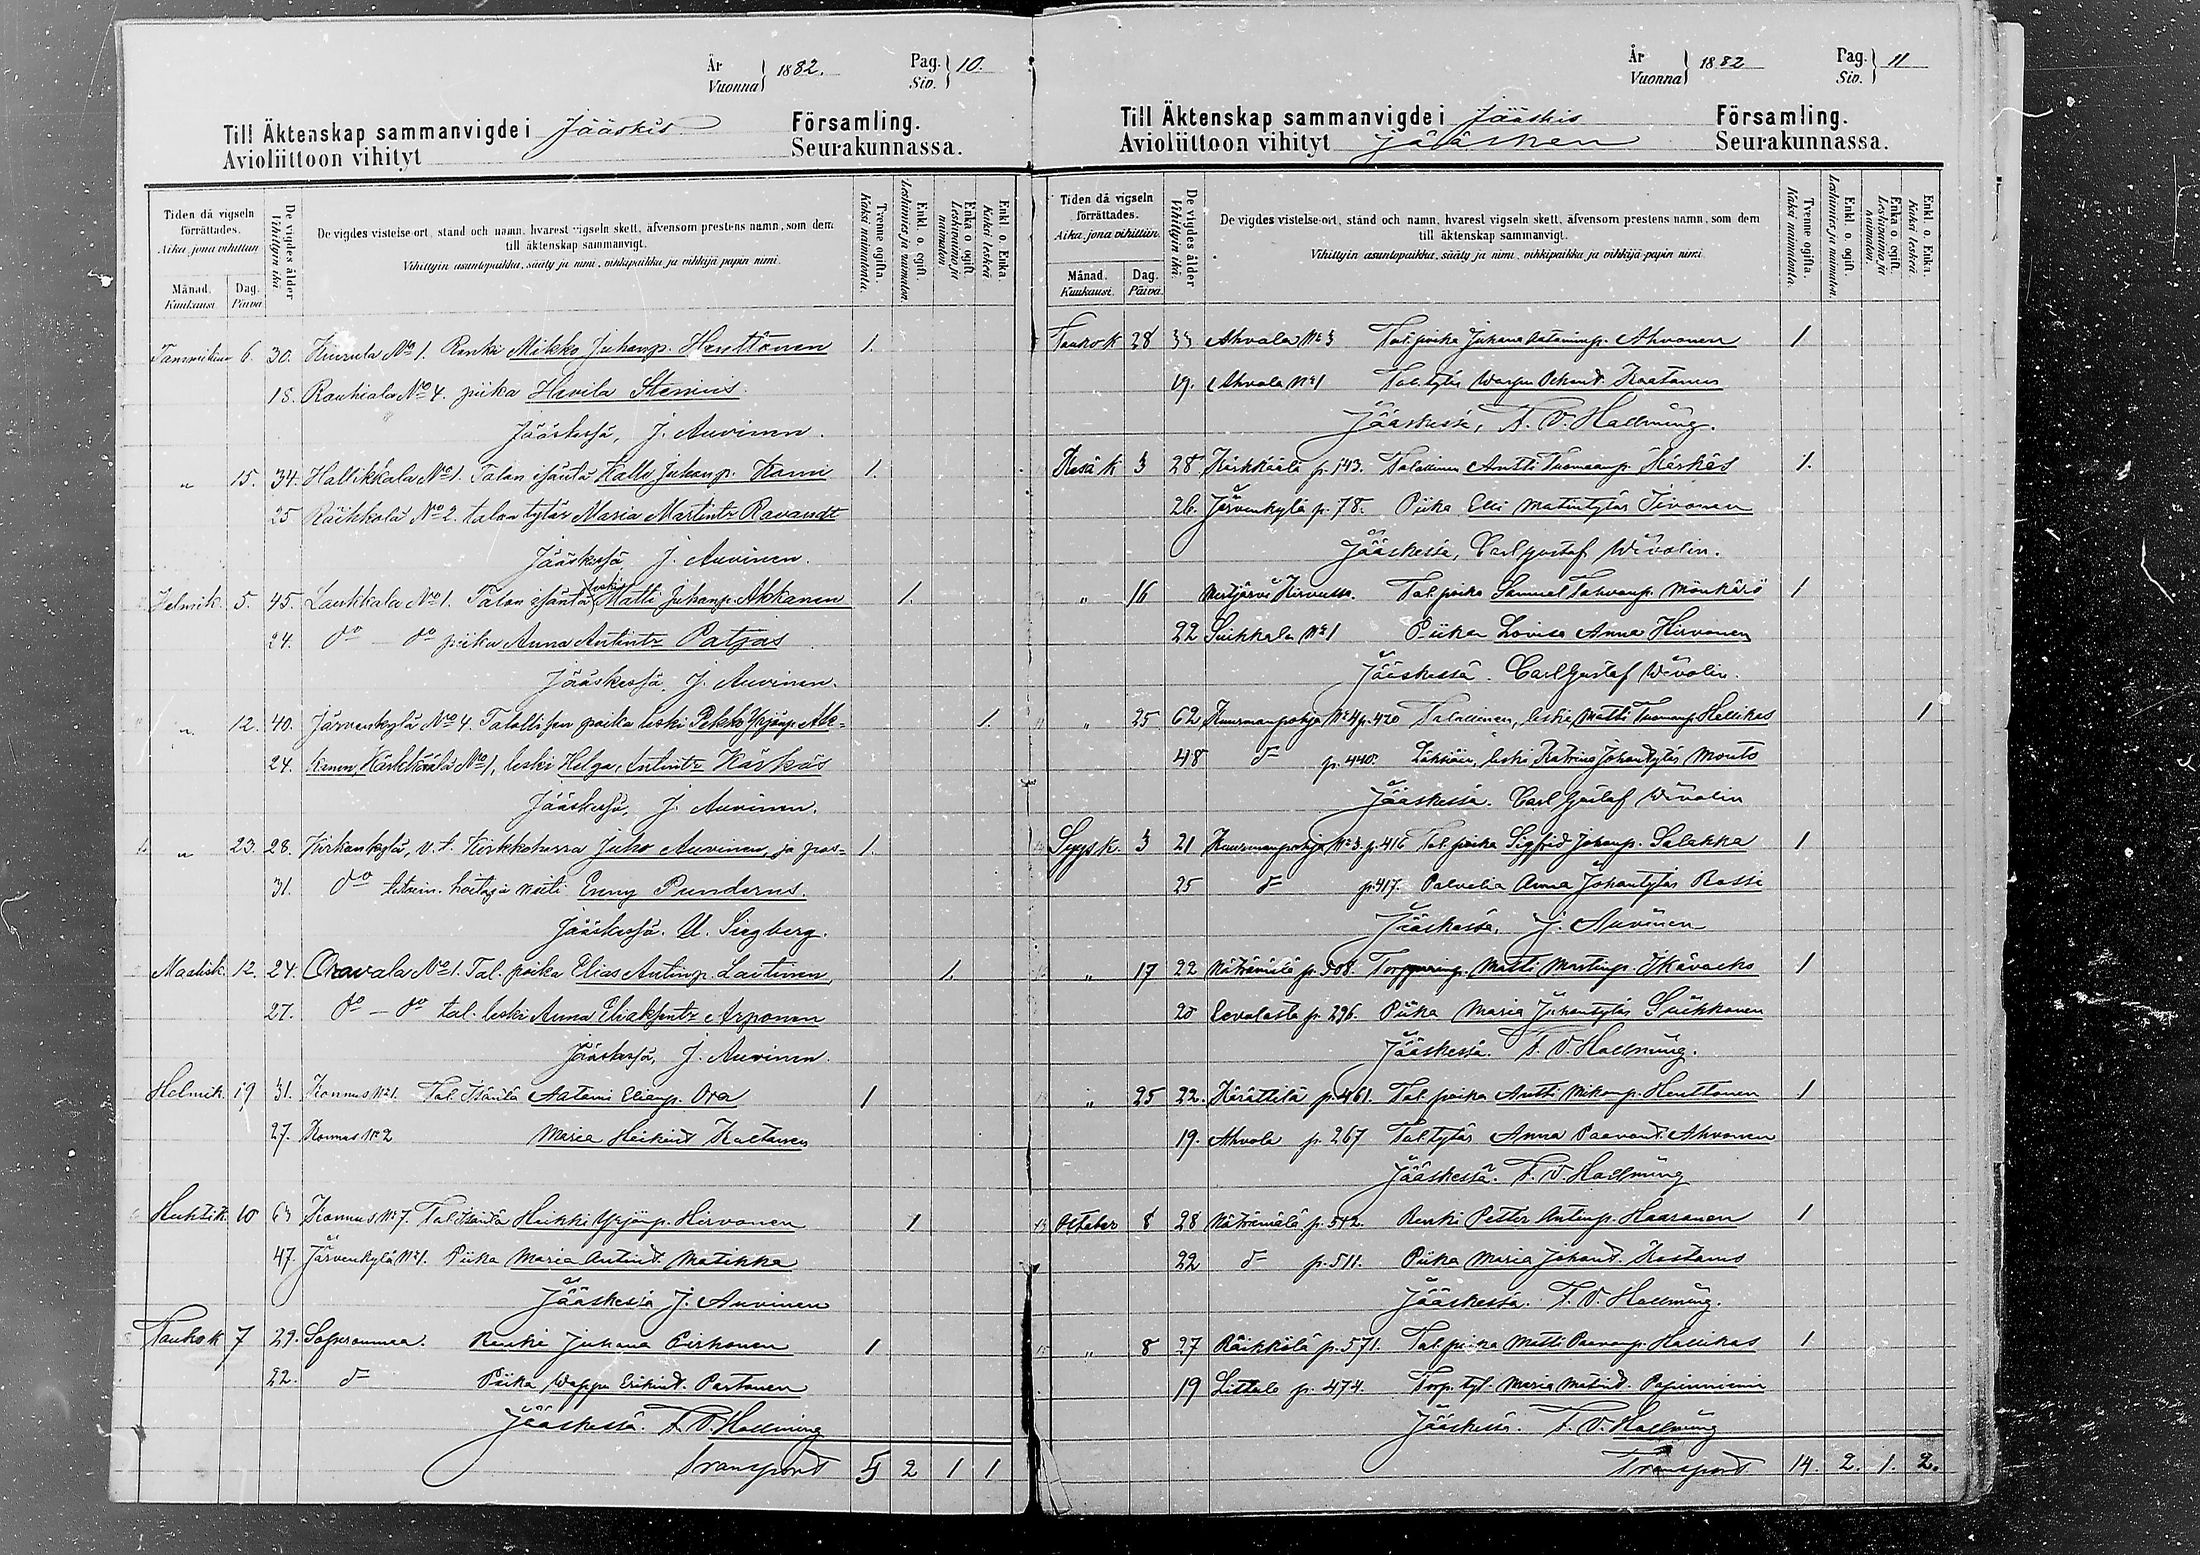 År
Vuonna } 1882.
Pag.
Siv. } 10.
Till Äktenskap sammanvigde i Jääskis Församling.
Avioliittoon vihityt Seurakunnassa.
Tiden då vigseln förrättades.
Aika, jona vihittiin
Månad. Kuukausi.
Dag. Päivä
De vigdes ålder
Vihittyin ikä.
De vigdes vistelse-ort, stånd och namn, hvarest vigseln skett, äfvensom prestens namn, som dem
till äktenskap sammanvigt.
Vihittyin asuntopaikka, sääty ja nimi, vihkipaikka ja vihkijä papin nimi.
Tvenne ogifta.
Kaksi naimatonta.
Enkl. o. ogift.
Leskimies ja naimaton.
Enka o. ogift
Leskivaimo ja naimaton.
Enkl. o. Enka.
Kaksi leskeä.
Tammikuu 6. 30. Kiurula No 1. Renki Mikko Juhanp. Henttonen 1.
18. Rauhiala No 4. piika Hevila Stenius.
Jääskessä, J. Auvinen.
" 15. 34. Hallikkala No 1. Talon isäntä Kalle Juhanp. Kansi 1.
25 Räikkölä No 2. talon tytär Maria Martintr Ravandt
Jääskessä J. Auvinen.
Helmik. 5. 45. Laukkala No 1. Talon isäntä leski Matti Juhanp. Akkanen 1.
24. do — do piika Anna Antintr Patjas
Jääskessä, J. Auvinen.
" 12. 40. Järvenkylä No 4. Talollisen poika leski Pekka Yrjönp. Ak- 1.
24. kanen, Kärkkäälä No 1, leski Helga Antintr Kärkäs
Jääskessä, J. Auvinen.
" 23. 28. Kirkonkylä, v. t. Kirkkoherra Juho Auvinen, ja pos- 1.
31. do tikoin. hoitaja neiti Enny Punderus.
Jääskessä. U. Siegberg.
Maalisk. 12. 24. Oravala No 1. Tal. poika Elias Antinp. Laitinen 1.
27. do — do tal. leski Anna Eliaksentr Arponen
Jääskessä, J. Auvinen.
Helmik. 19 31. Konnus No 1. Tal. Isäntä Aatami Elianp. Ora 1
27. Konnus No 2 Maria Heikint Kaltanen
Huhtik. 10 63 Konnus No 7. Tal Isäntä Heikki Yrjönp. Hirvonen 1
47. Järvenkylä No 1. Piika Maria Antint. Matikka
Jääskessä J. Auvinen
Toukok 7 29. Salpeanmaa. Renki Juhana Pirhonen 1
22. do Piika Wappu Erikint. Partanen
Jääskessä. F. V. Hallming
Transport 5 2 1 1
År
Vuonna } 1882
Pag.
Siv. } 11
Till Äktenskap sammanvigde i Jääskis Församling.
Avioliittoon vihityt Jääsken Seurakunnassa.
Tiden då vigseln förrättades.
Aika, jona vihittiin.
Månad. Kuukausi.
Dag. Päivä.
De vigdes ålder
Vihittyin ikä.
De vigdes vistelse-ort, stånd och namn, hvarest vigseln skett, äfvensom prestens namn, som dem
till äktenskap sammanvigt.
Vihittyin asuntopaikka, sääty ja nimi, vihkipaikka ja vihkijä-papin nimi.
Tvenne ogifta.
Kaksi naimatonta.
Enkl. o. ogift.
Leskimies ja naimaton.
Enka o. ogift.
Leskivaimo ja naimaton.
Enkl. o. Enka.
Kaksi leskeä.
Toukok 28 33 Ahvola No 3 Tal. poika Juhana Aataminp. Ahvonen 1
19. Ahvola No 1 Tal. tytär Warpu Pekant. Kaatanen
Jääskessä, F. V. Hallming.
Kesäk 3 28 Kärkkäälä p. 143. Talollinen Antti Tuomaanp. Kärkäs 1.
26. Järvenkylä p. 78. Piika Elli Matintytär Tivonen
Jääskessä, Carl Gustaf Wivolin.
" 16 Kirvussa. Tal. poika Samuel Tahvanp. Mönkärö 1
22 Suikkala No 1 Piika Lovisa Anna Hirvonen
Jääskessä. Carl Gustaf Wivolin.
" 25 62 Kuurmanpohja No 4 p. 420 Talollinen, leski Matti Tuomanp. Hellikas 1
48 do p. 440. leski Katrina Johantytär Monto
Jääskessä. Carl Gustaf Wivolin
Syysk. 3 21 Kuurmanpohja No 3. p. 416 Tal. poika Sigfrid Johanp. Salakka 1
25 do p. 417. Palvelia Anna Johantytär Rossi
Jääskessä, J. Auvinen
" 17 22 Näträmälä p. 508. Matti Martinp. Ikävalko 1
20 p. 296. Piika Maria Juhantytär Suikkanen
Jääskessä. F. V. Hallming.
" 25 22. Kärättilä p. 461. Tal. poika Antti Mikonp. Henttonen 1
19. Ahvola p. 267 Tal tytär Anna Paavont. Ahvonen
Jääskessä. F. V. Hallming
October 8 28 Näträmälä p. 512. Renki Petter Antinp. Haaranen 1
22 do p. 511. Piika Maria Johant. Kostamo
Jääskessä. F. V. Hallming.
" 8 27 Räikkölä p. 571. Tal. poika Matti Paavonp. Hallikas 1
19 Littola p. 474. Torp. tyt. Maria Matint. Papinniemi
Jääskessä. F. V. Hallming
Transport 14. 2. 1. 2.